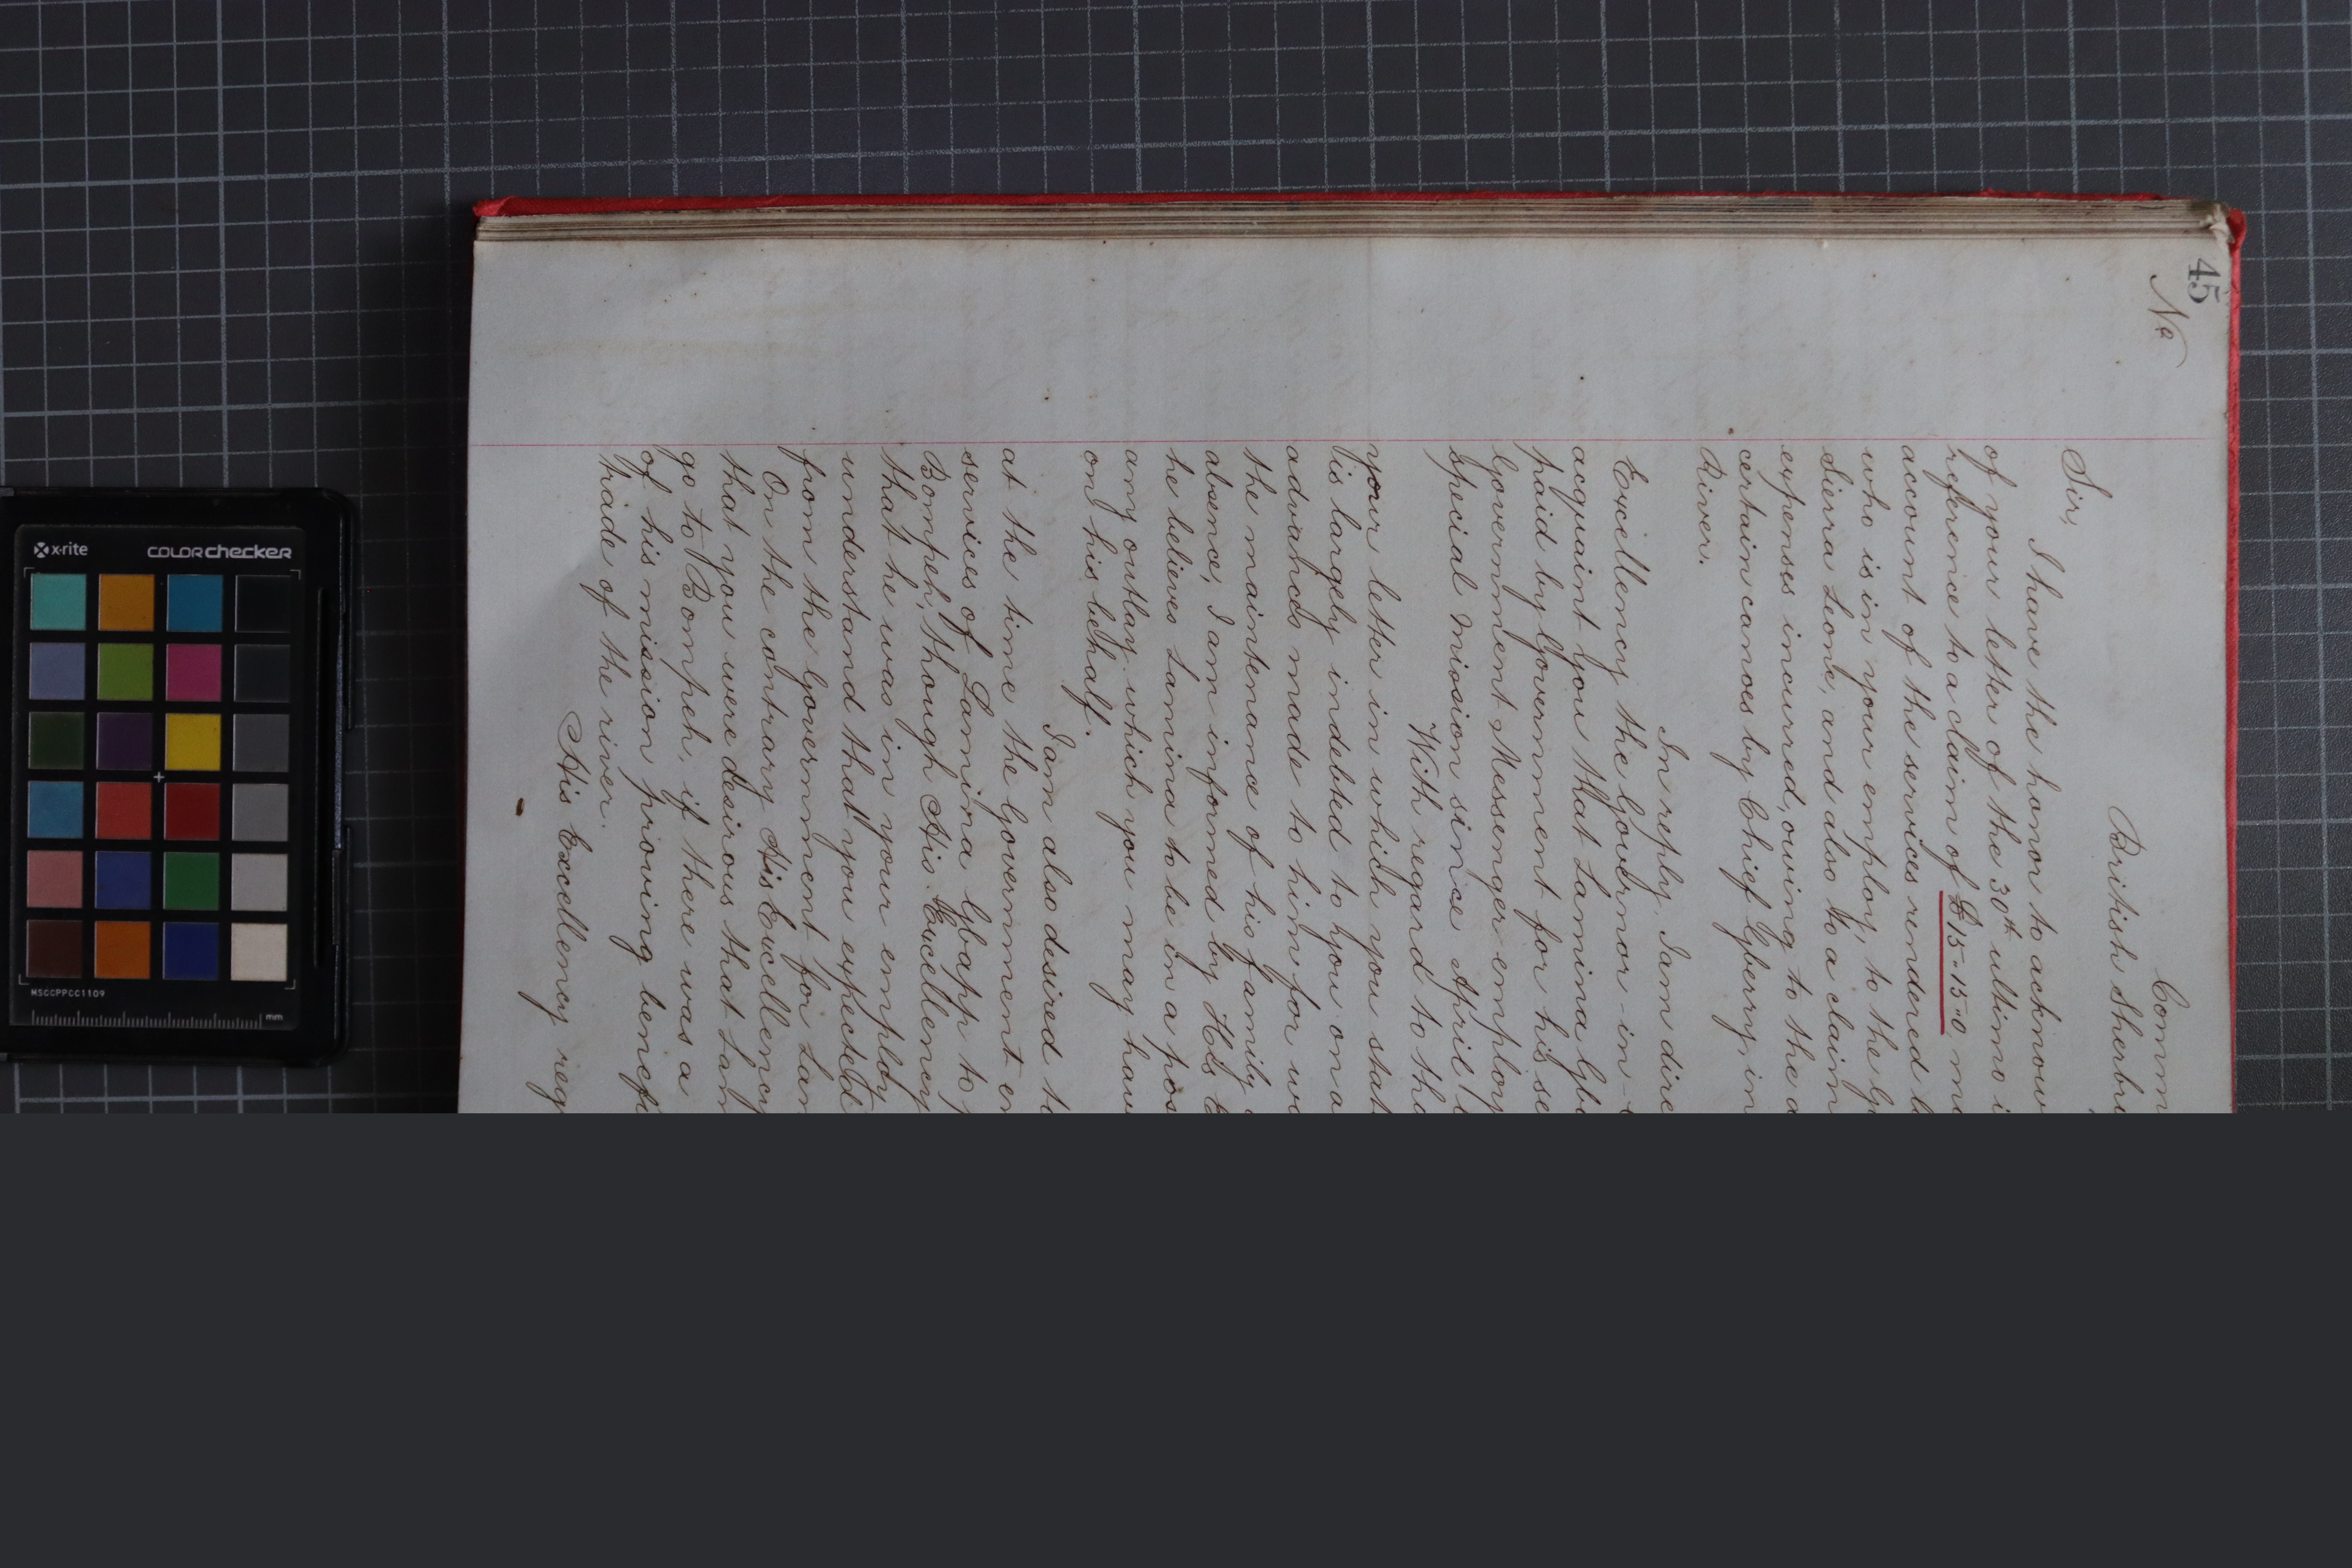 45
No
Comm
British Sherbr
Sir,
I have the honor to acknow
of your letter of the 30th ultimo i
reference to a claim of £15-15-0 m
account of the services rendered b
who is in your employ, to the G
Sierra Leone, and also to a claim
expenses incurred, owing to the d
certain canoes by Chief Gberry, in
River.
In reply, I am dire
Excellency the Governor-in-
acquaint you that Lamina Gb
paid by Government for his se
Government Messenger employ
special mission since April l
With regard to tha
your letter in which you stat
is largely indebted to you on a
advances made to him for w
the maintenance of his family
absence, I am informed by His E
he believes Lamina to be in a pos
any outlay which you may hav
on his behalf.
I am also desired t
at the time the Government en
services of Lamina Gbapp to
Bompeh, though His Excellency
that he was in your employ
understand that you expected
from the Government for Lam
On the contrary His Excellency
that you were desirous that Lam
go to Bompeh, if there was a
of his mission proving benef
trade of the river.
His Excellency reg
x-rite
colorchecker
MSCCPPCC1109
mm